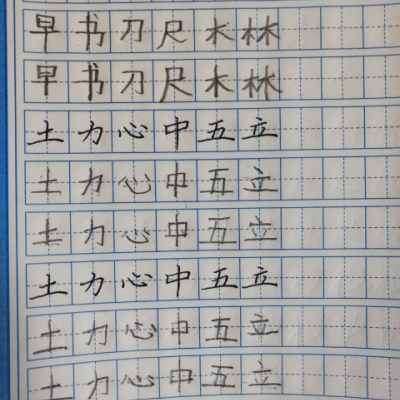 早书刀尺木林
早书刀尺木林
土力心中五立
土力心中五立
土力心中五立
土力心中五立
土力心中五立
土力心中五立